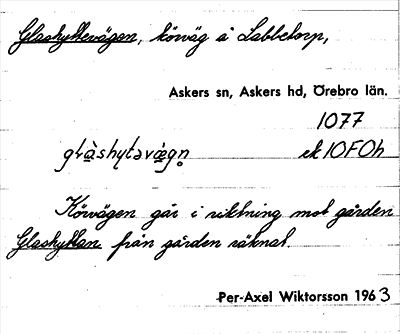 Glashyttevägen, körväg å Labbetorp,
Askers sn, Askers hd, Örebro län.
1077
glàshytəvægn̥ ek 10F0h
Körvägen går i riktning mot gården
Glashyttan från gården räknat.
Per-Axel Wiktorsson 1963